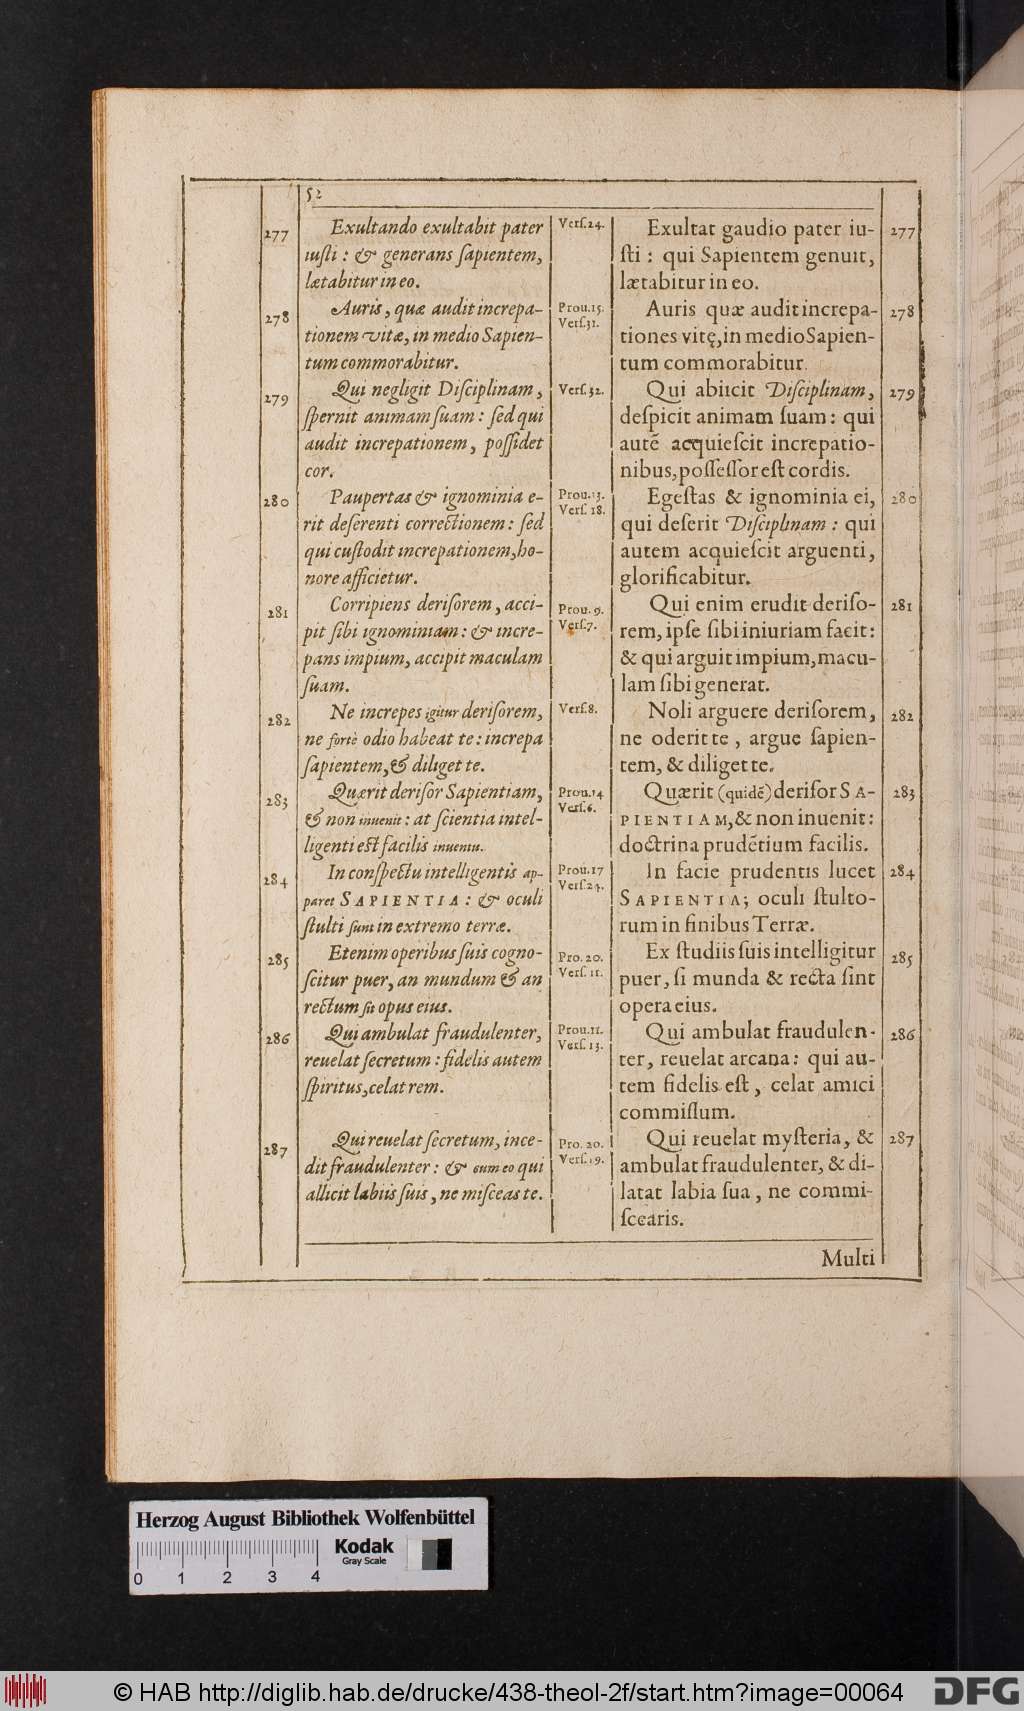 52
277
Exultando exultabit pater
iuſti : & generans ſapientem,
lætabitur in eo.
278
Auris, quæ audit increpa-
tionem vitæ, in medio Sapien-
tum commorabitur.
279
Qui negligit Diſciplinam,
ſpernit animam ſuam : ſed qui
audit increpationem, poſſidet
cor.
280
Paupertas & ignominia e-
rit deſerenti correctionem : ſed
qui cuſtodit increpationem, ho-
nore afficietur.
281
Corripiens deriſorem, acci-
pit ſibi ignominiam : & incre-
pans impium, accipit maculam
ſuam.
282
Ne increpes igitur deriſorem,
ne fortè odio habeat te : increpa
ſapientem, & diliget te.
283
Quærit deriſor Sapientiam,
& non inuenit : at ſcientia intel-
ligenti eſt facilis inuentu.
284
In conſpectu intelligentis ap-
paret SAPIENTIA : & oculi
ſtulti ſunt in extremo terræ.
285
Etenim operibus ſuis cogno-
ſcitur puer, an mundum & an
rectum ſit opus eius.
286
Qui ambulat fraudulenter,
reuelat ſecretum : fidelis autem
ſpiritus, celat rem.
287
Qui reuelat ſecretum, ince-
dit fraudulenter : & cum eo qui
allicit labiis ſuis, ne miſceas te.
Verſ. 24.
Prou. 15.
Verſ. 31.
Verſ. 32.
Prou. 13.
Verſ. 18.
Prou. 9.
Verſ. 7.
Verſ. 8.
Prou. 14
Verſ. 6.
Prou. 17
Verſ. 24.
Pro. 20.
Verſ. 11.
Prou. 11.
Verſ. 13.
Pro. 20.
Verſ. 19.
Exultat gaudio pater iu-
ſti : qui Sapientem genuit,
lætabitur in eo.
277
Auris quæ audit increpa-
tiones vitę, in medio Sapien-
tum commorabitur.
278
Qui abiicit Diſciplinam,
deſpicit animam ſuam : qui
autē acquieſcit increpatio-
nibus, poſſeſſor eſt cordis.
279
Egeſtas & ignominia ei,
qui deſerit Diſciplinam : qui
autem acquieſcit arguenti,
glorificabitur.
280
Qui enim erudit deriſo-
rem, ipſe ſibi iniuriam facit :
& qui arguit impium, macu-
lam ſibi generat.
281
Noli arguere deriſorem,
ne oderit te, argue ſapien-
tem, & diliget te.
282
Quærit (quidē) deriſor SA-
PIENTIAM, & non inuenit :
doctrina prudētium facilis.
283
In facie prudentis lucet
SAPIENTIA; oculi ſtulto-
rum in finibus Terræ.
284
Ex ſtudiis ſuis intelligitur
puer, ſi munda & recta ſint
opera eius.
285
Qui ambulat fraudulen-
ter, reuelat arcana : qui au-
tem fidelis eſt, celat amici
commiſſum.
286
Qui reuelat myſteria, &
ambulat fraudulenter, & di-
latat labia ſua, ne commi-
ſcearis.
287
Multi
Herzog August Bibliothek Wolfenbüttel
Kodak
Gray Scale
0 1 2 3 4
© HAB http://diglib.hab.de/drucke/438-theol-2f/start.htm?image=00064
DFG